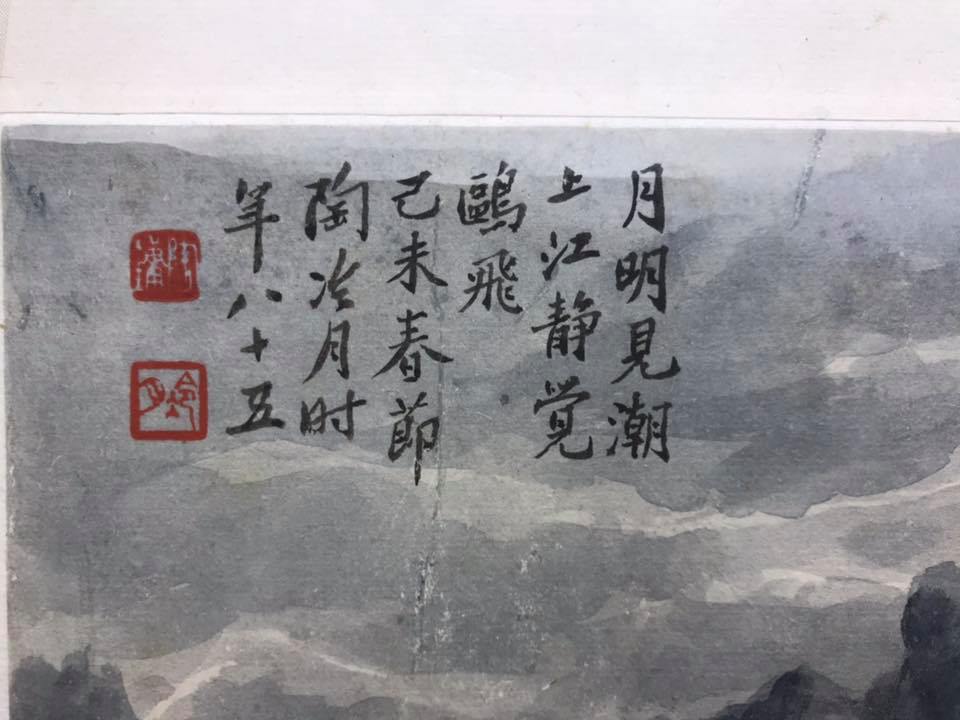 月明見潮
上江静覚
鷗飛
己未春節
陶冷月时
年八十五
陶鏞
冷月